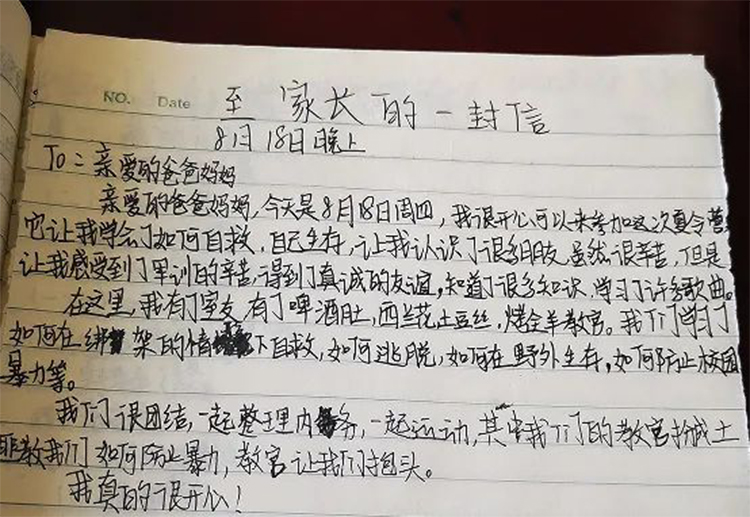 NO. Date 至家长的一封信
8月18日晚上
To：亲爱的爸爸妈妈
亲爱的爸爸妈妈，今天是8月18日周四，我很开心可以来参加这次夏令营
它让我学会了如何自救，自己生存，让我认识了很多朋友，虽然很辛苦，但是
让我感受到了军训的辛苦，得到了真诚的友谊，知道了很多知识，学习了许多歌曲。
在这里，我有了室友有了啤酒肚，西兰花土豆丝，烤全羊教官。我们学习了
如何在绑架的情况下自救，如何逃脱，如何在野外生存，如何防止校园
暴力等。
我们很团结，一起整理内务，一起运动，其中我们的教官扮成土
匪教我们如何防止暴力，教官让我们抱头。
我真的很开心！